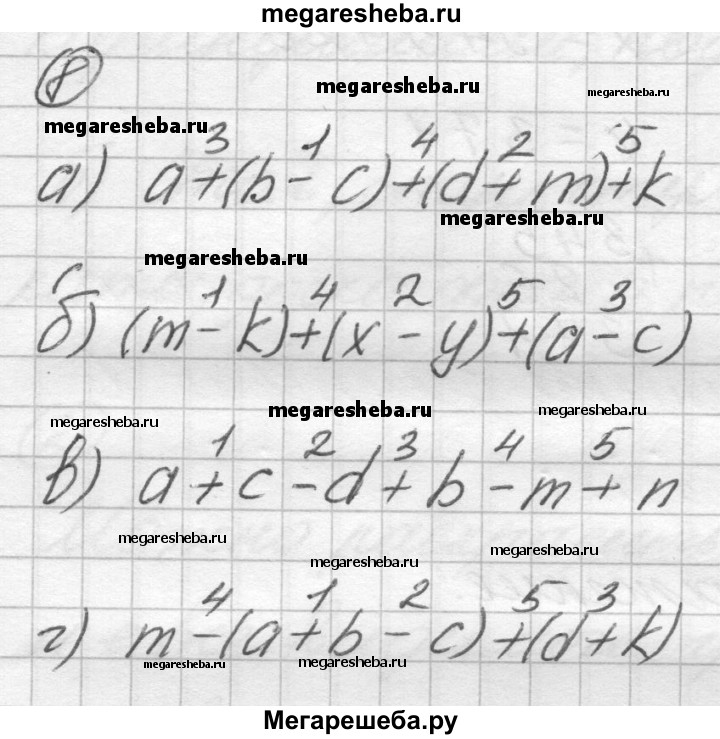 megaresheba.ru
8
megaresheba.ru
megaresheba.ru
megaresheba.ru
3 1 4 2 5
а) a+(b-c)+(d+m)+k
megaresheba.ru
megaresheba.ru
1 4 2 5 3
б) (m-k)+(x-y)+(a-c)
megaresheba.ru
megaresheba.ru
megaresheba.ru
1 2 3 4 5
в) a+c-d+b-m+n
megaresheba.ru
megaresheba.ru
megaresheba.ru
4 1 2 5 3
г) m-(a+b-c)+(d+k)
megaresheba.ru
megaresheba.ru
Мегарешеба.ру